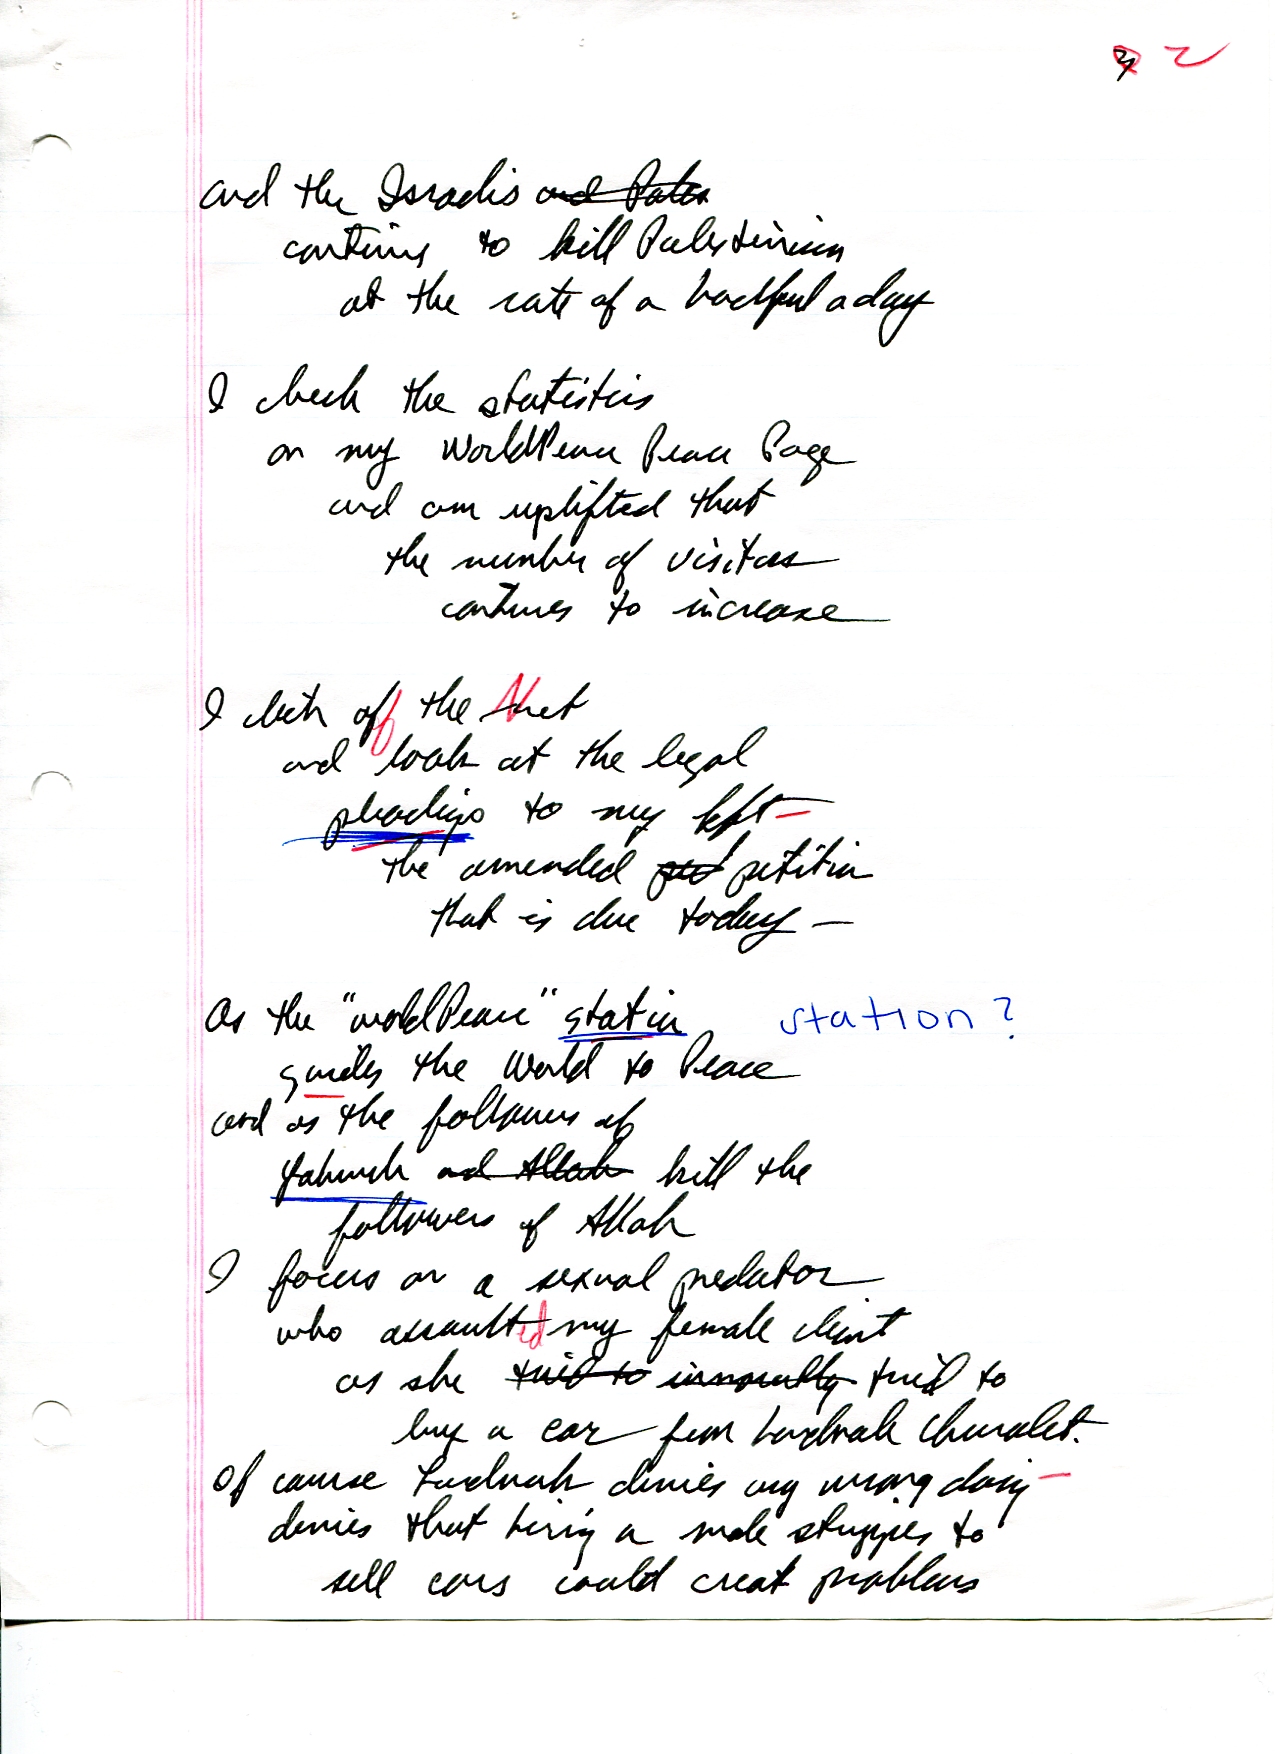 2
and the Israelis and Pales
continue to kill Palestinians
at the rate of a handful a day
I check the statistics
on my WorldPeace Peace Page
and am uplifted that
the number of visitors
continues to increase
I click off the Net
and look at the legal
pleadings to my left—
the amended pet petition
that is due today—
As the "WorldPeace" station station?
guides the World to Peace
and as the followers of
Yahweh and Allah kill the
followers of Allah
I focus on a sexual predator
who assaulted my female client
as she tried to innocently tried to
buy a car from Landmark Chevrolet.
Of course Landmark denies any wrong doing—
denies that hiring a male stripper to
sell cars could creat problems